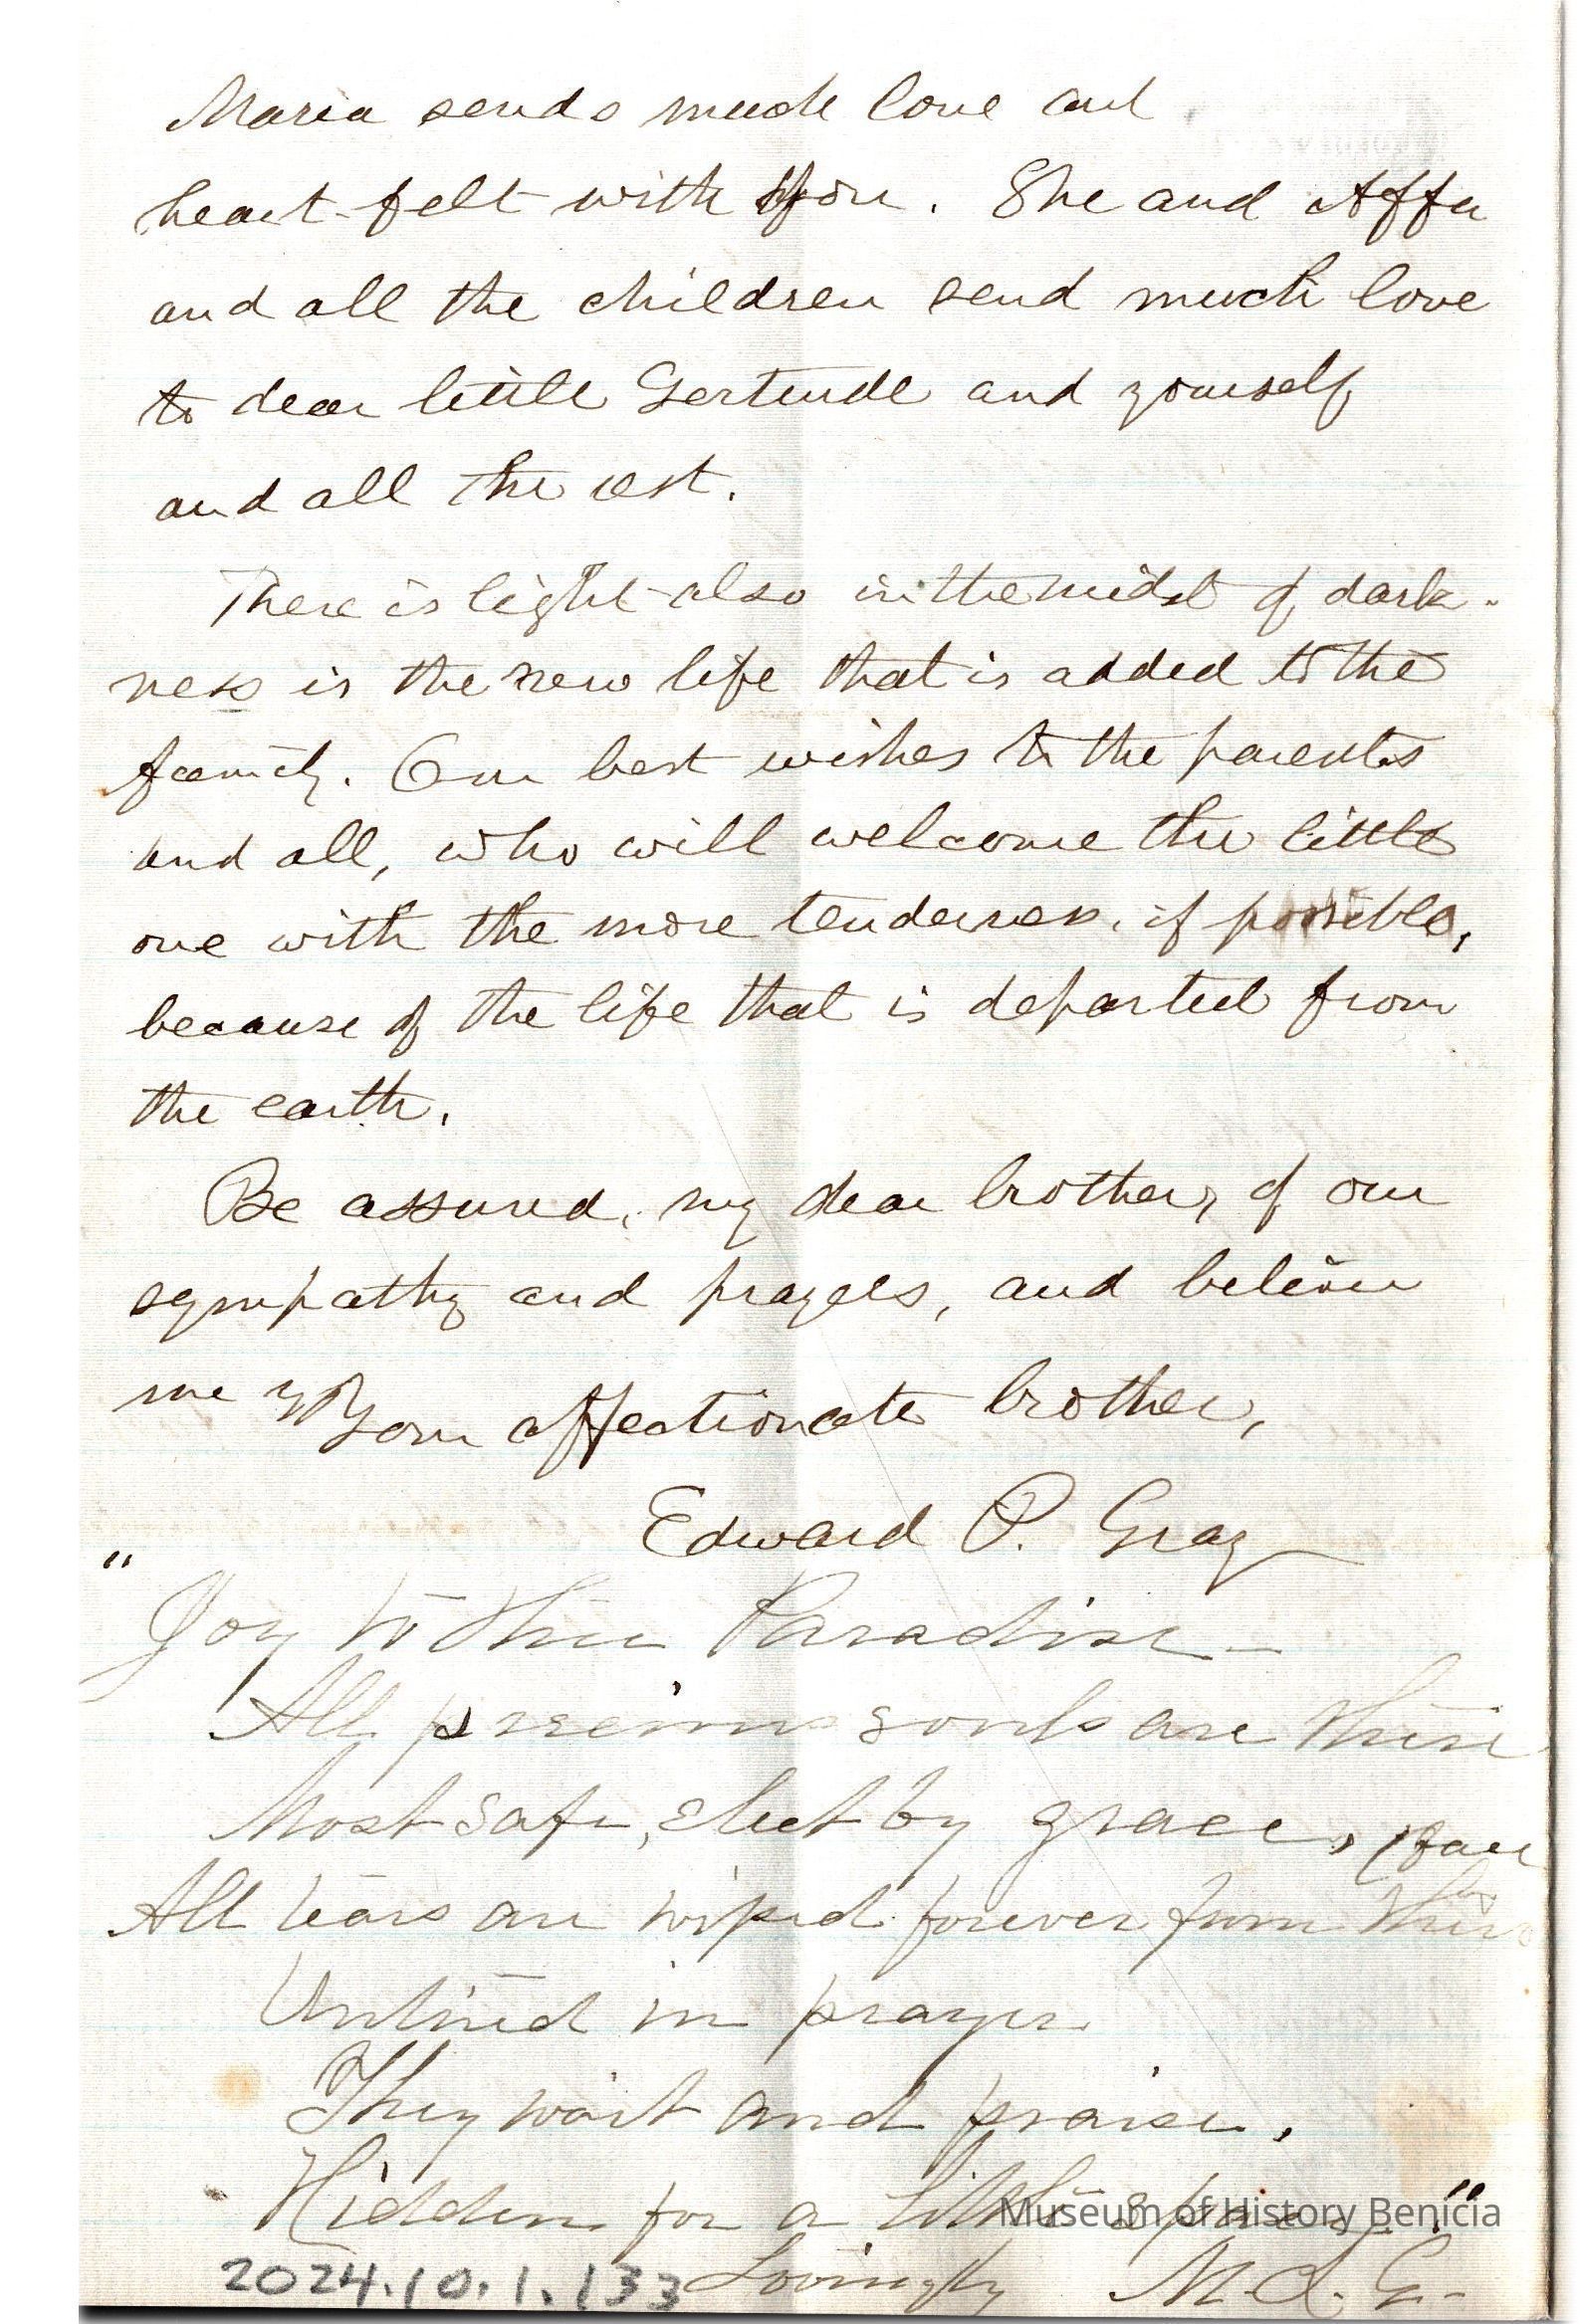 Maria sends much love and
heart-felt with you. She and Affa
and all the children send much love
to dear little Gertrude and yourself
and all the rest.
There is light also in the midst of dark-
ness is the new life that is added to the
family. Our best wishes to the parents
and all, who will welcome the little
one with the more tenderness, if possible,
because of the life that is departed from
the earth.
Be assured, my dear brother, of our
sympathy and prayers, and believe
me
Your affectionate brother,
Edward P. Gray
"Joy to thee Paradise –
All precious souls are there
Most safe, elect by grace,
All tears are wiped forever from their
face
Untired in prayer
They wait and praise,
Hidden for a little space."
Lovingly M. A. G.
2024.10.1.133
Museum of History Benicia